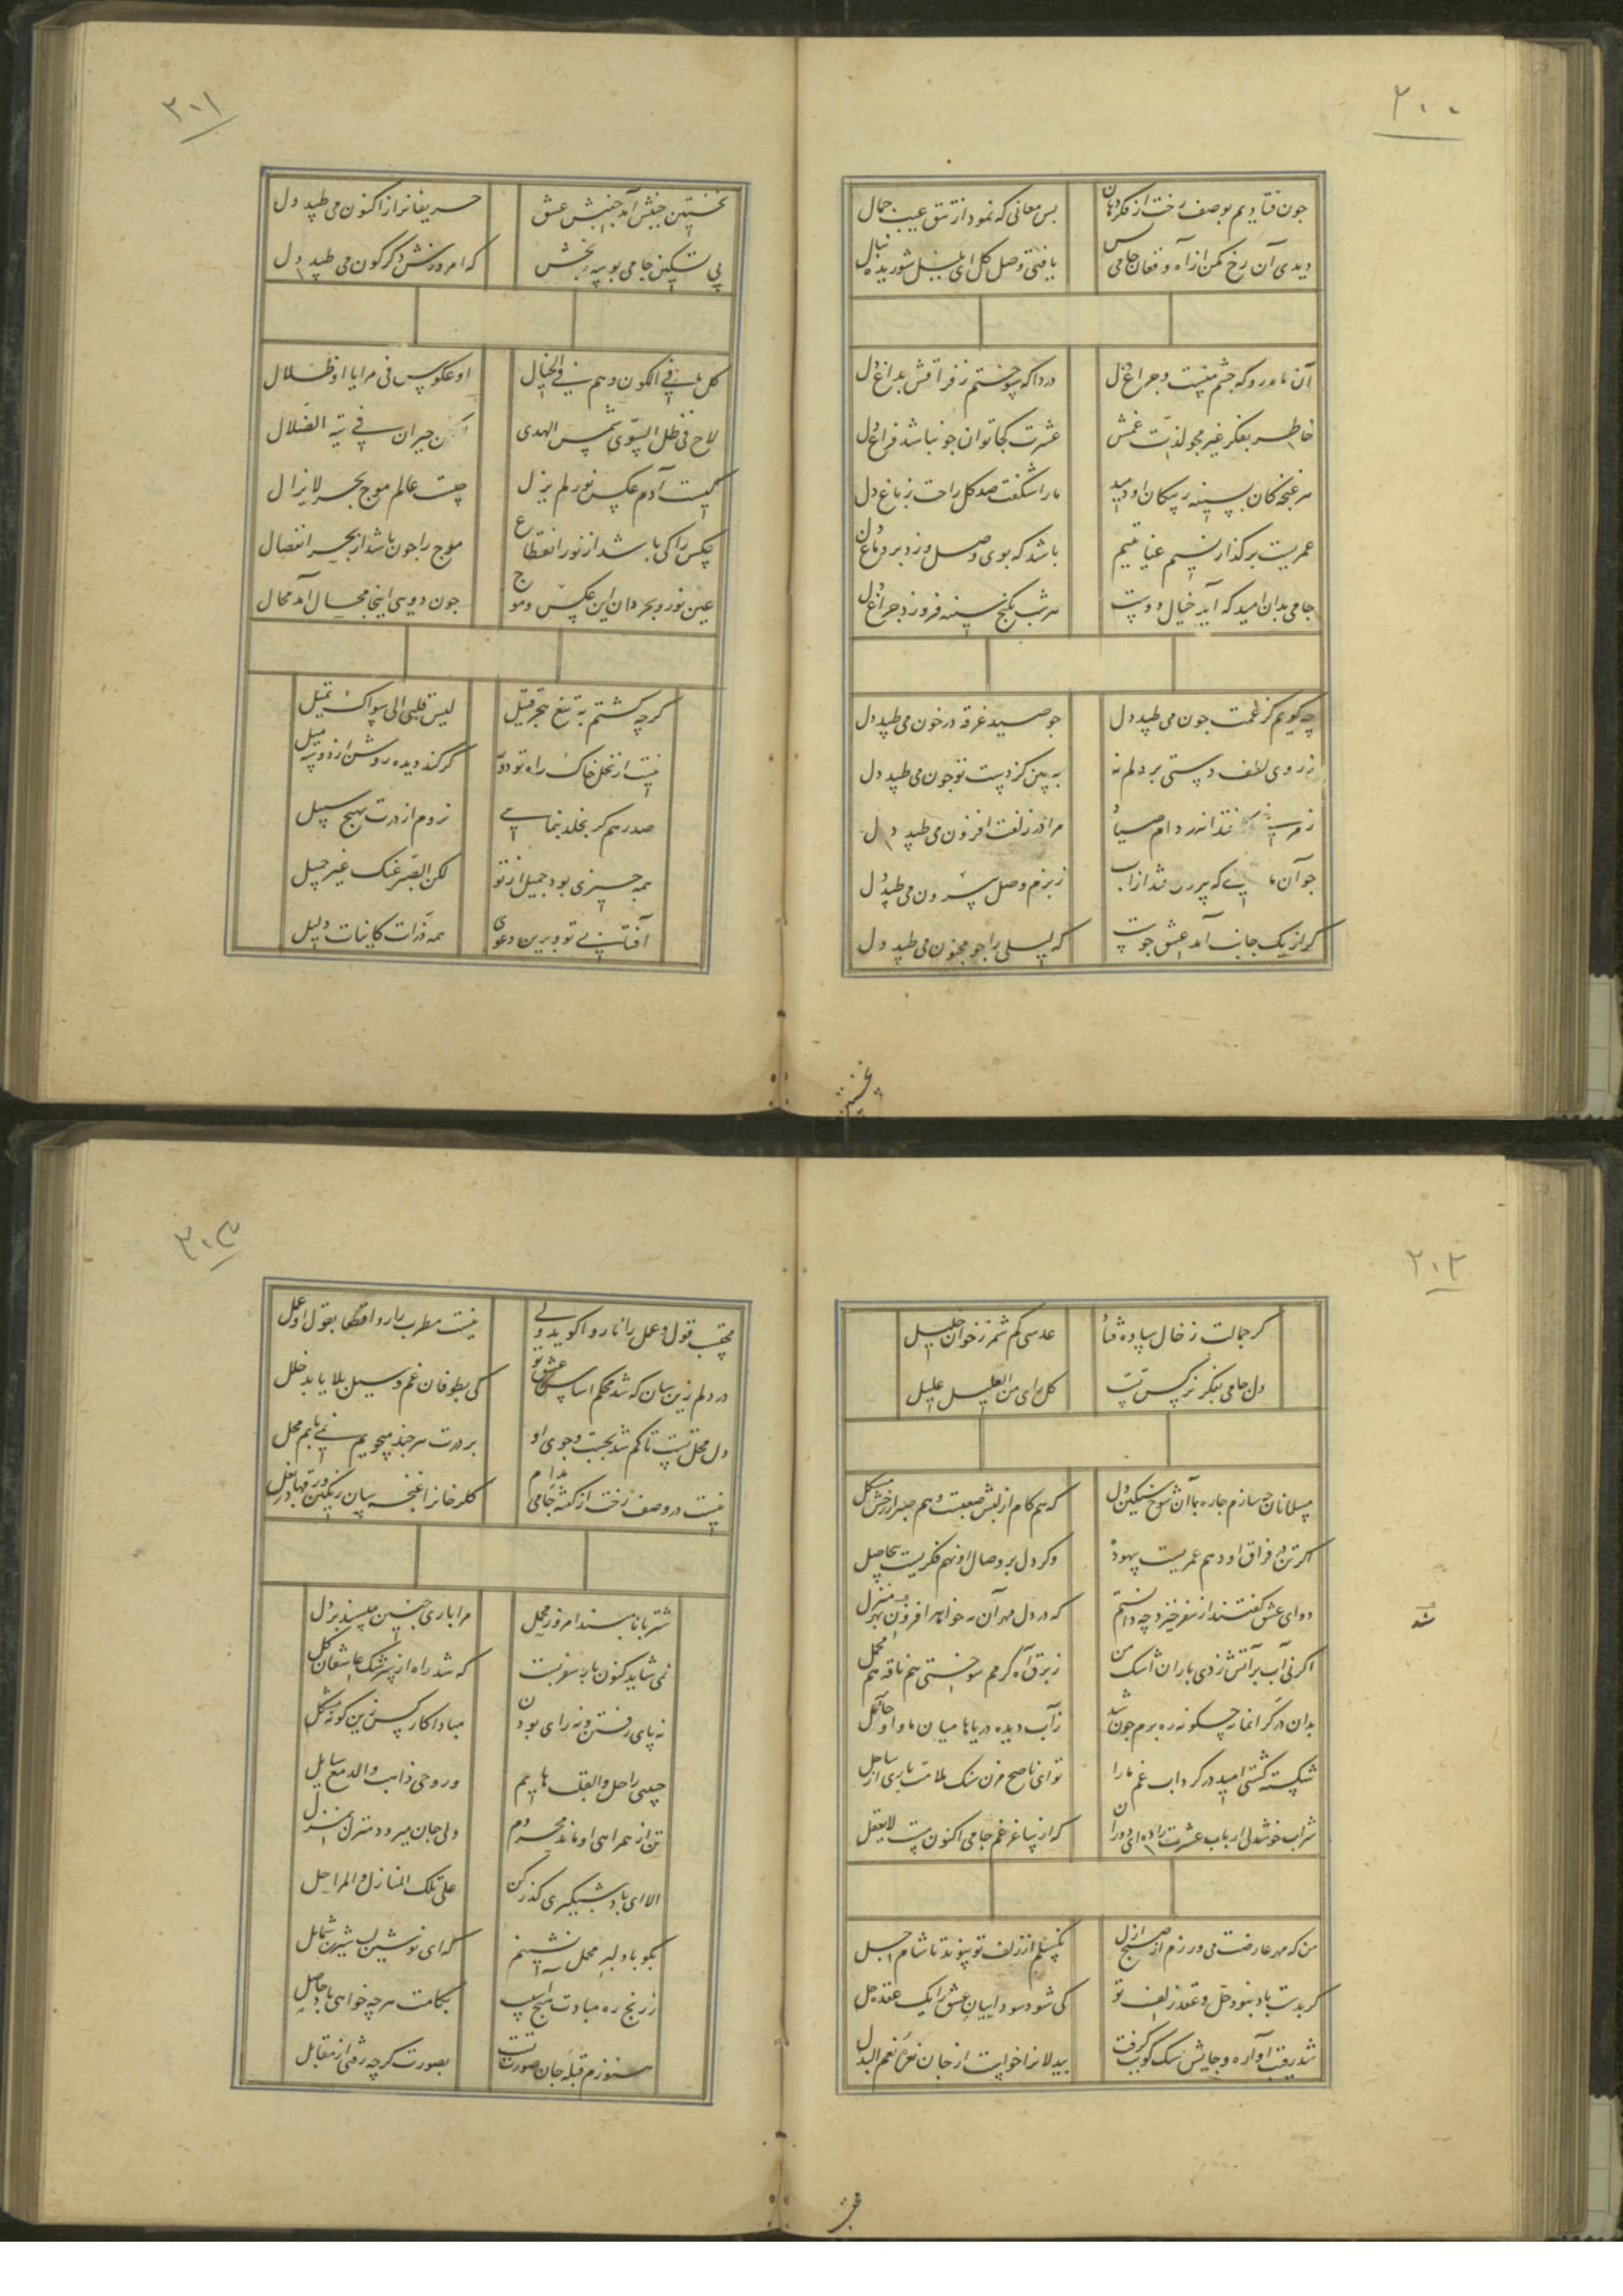 ۳۰۰
چون فتادیم بوصف رخت از فکر دهان
بس معانی که نمود از تتق غیب جمال
دیدی آن رخ مکن از آه و فغان جامی بس
یافتی وصل کل ای بلبل شوریده منال
آن ماه رو که چشم منست و چراغ دل
دردا که سوختم ز فراقش بداغ دل
خاطر بفکر غیر مجو لذت غمش
عشرت کجا توان جو نباشد فراغ دل
هر غنچه کان بسینه ز پیکان او دمید
ما را شکفت صد کل راحت ز باغ دل
عمریست بر کذار نسیم عنایتیم
باشد که بوی وصل وزد بر دماغ دل
جامی بدان امید که آید خیال دوست
هر شب بکنج سینه فروزد چراغ دل
چه کویم کز غمت چون می طپد دل
جو صید غرقه در خون می طپد دل
ز روی لطف دستی بر دلم نه
به بین کز دست تو چون می طپد دل
دام صیاد
مرا در زلفت افزون می طپد دل
جو آن ماهی که بیرون شد از آب
ز بزم وصل بیرون می طپد دل
کر از یک جانب آمد عشق جونست
که لیلی را جو مجنون می طپد دل
نخستین
۳۰۱
نخستین جنبش آمد جنبش عشق
حریفانرا ز اکنون می طپد دل
پی تسکین جامی بوسه بخش
که امروزش دکرکون می طپد دل
کل ما فی الکون وهم فی الخیال
او عکوس فی مرایا او ظلال
لاح فی ظل السوی شمس الهدی
حیران فی تیه الضلال
کیست آدم عکس نور لم یزل
چیست عالم موج بحر لا یزال
عکس را کی باشد از نور انقطاع
موج را چون باشد از بحر انفصال
عین نور و بحر دان این عکس و موج
چون دویی اینجا محال آمد محال
کرچه کشتم به تیغ هجر قتیل
لیس قلبی الی سواک یمیل
نیست از کحل خاک راه تو دور
کر کند دیده روشن از دو سه میل
صد رهم کر بخلد بنمایی
نروم از درت بهیچ سبیل
همه چیزی بود جمیل از تو
لکن الصبر عنک غیر جمیل
آفتابی تو و برین دعوی
همه ذرات کاینات دلیل
۳۰۲
کر جمالت ز خال ساده فتاد
عدسی کم شمر ز خوان خلیل
دل جامی بنکر نرکس تست
کل رای من العلیل علیل
مسلمانان چه سازم چاره با آن شوخ سنکین دل
که هم کام از لبش صعبست و هم صبر از رخش مشکل
اکر تن در فراق او دهم عمریست بیهوده
وکر دل بر وصال او نهم فکریست بیحاصل
دوای عشق کفتند از سفر خیزد چه دانستم
که در دل مهر آن مه خواهد افزون شد بهر منزل
اکر نی آب بر آتش زدی باران اشک من
ز برق آه کرمم سوختی هم ناقه هم محمل
بدان در کرانمایه چکونه ره برم چون شد
ز آب دیده دریاها میان ما و او حائل
شکسته کشتی امید در کرداب غم ما را
تو ای ناصح مزن سنک ملامت باری از ساحل
شراب خوشدلی ارباب عشرت را ده ای دوران
که از ساغر غم جامی اکنون مست لا یعقل
شد
من که مهر عارضت می ورزم از صبح ازل
نکسلم از زلف تو پیوند تا شام اجل
کر بدست باد نبود حل و عقد زلف تو
کی شود سوداییان عشق را یک عقده حل
شد رقیب آواره و جایش سک کویت کرفت
بیدلانرا خواست از جان نعره نعم البدل
محتسب
۳۰۳
محتسب قول و عمل را ناروا کوید ولی
نیست مطرب را روا قطعا بقول او عمل
در دلم زین سان که شد محکم اساس عشق تو
کی بطوفان غم و سیل بلا یابد خلل
دل محل تست تا کم شد بجست و جوی او
بر درت هرچند میجویم نمی یابم محل
نیست در وصف رخت از کفته جامی مدام
کلرخانرا غنچه سان رنکین ورقها در بغل
شتربانا مبند امروز محمل
مرا باری چنین مپسند بر دل
نمی شاید کنون بار سفر بست
که شد راه از سرشک عاشقان کل
نه پای رفتن و نه رای بودن
مبادا کار کس زین کونه مشکل
حبیبی راحل والقلب هایم
و روحی ذاهب والدمع سایل
تن از همراهی او ماند محروم
ولی جان میرود منزل بمنزل
الا ای باد شبکیری کذر کن
علی تلک المنازل والمراحل
بکو با دلبر محمل نشینم
که ای نوشین لب شیرین شمایل
ز رنج ره مبادت هیچ آسیب
بکامت هر چه خواهی باد حاصل
هنوزم قبله جان صورت تست
بصورت کرچه رفتی از مقابل